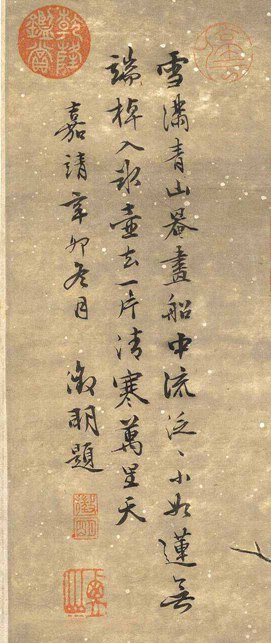 雪滿青山暮畫船中流泛〻小如蓮無
端棹入氷壺去一片清寒萬里天
嘉靖辛卯冬月
徵明題
乾隆鑑賞